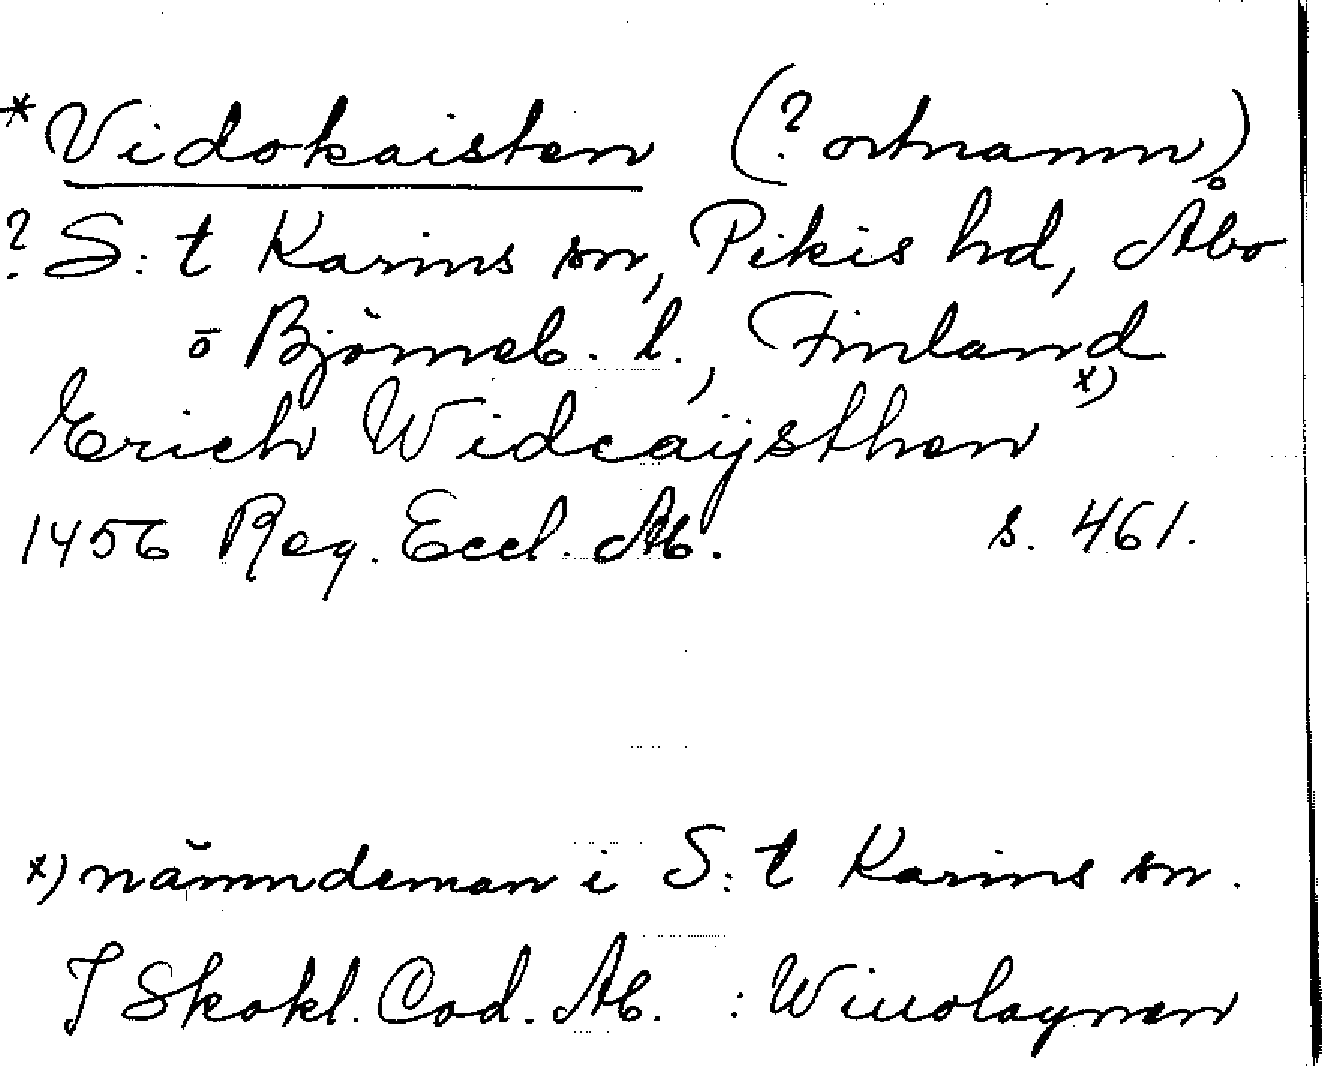 *Vidokaisten (? ortnamn)
? S:t Karins sn, Pikis hd, Åbo
o Björneb. l., Finland
Erich Widcaysthen x)
1456 Reg. Eccl. Ab. s. 461.
x) nämndeman i S:t Karins sn.
I Skokl. Cod. Ab. : Wiuolaynen